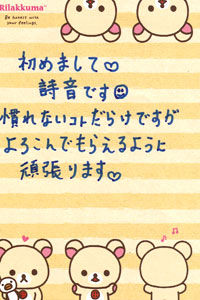 Rilakkuma™
Be honest with
your feelings.
初めまして♡
詩音です☺
慣れないコトだらけですが
よろこんでもらえるように
頑張ります♡